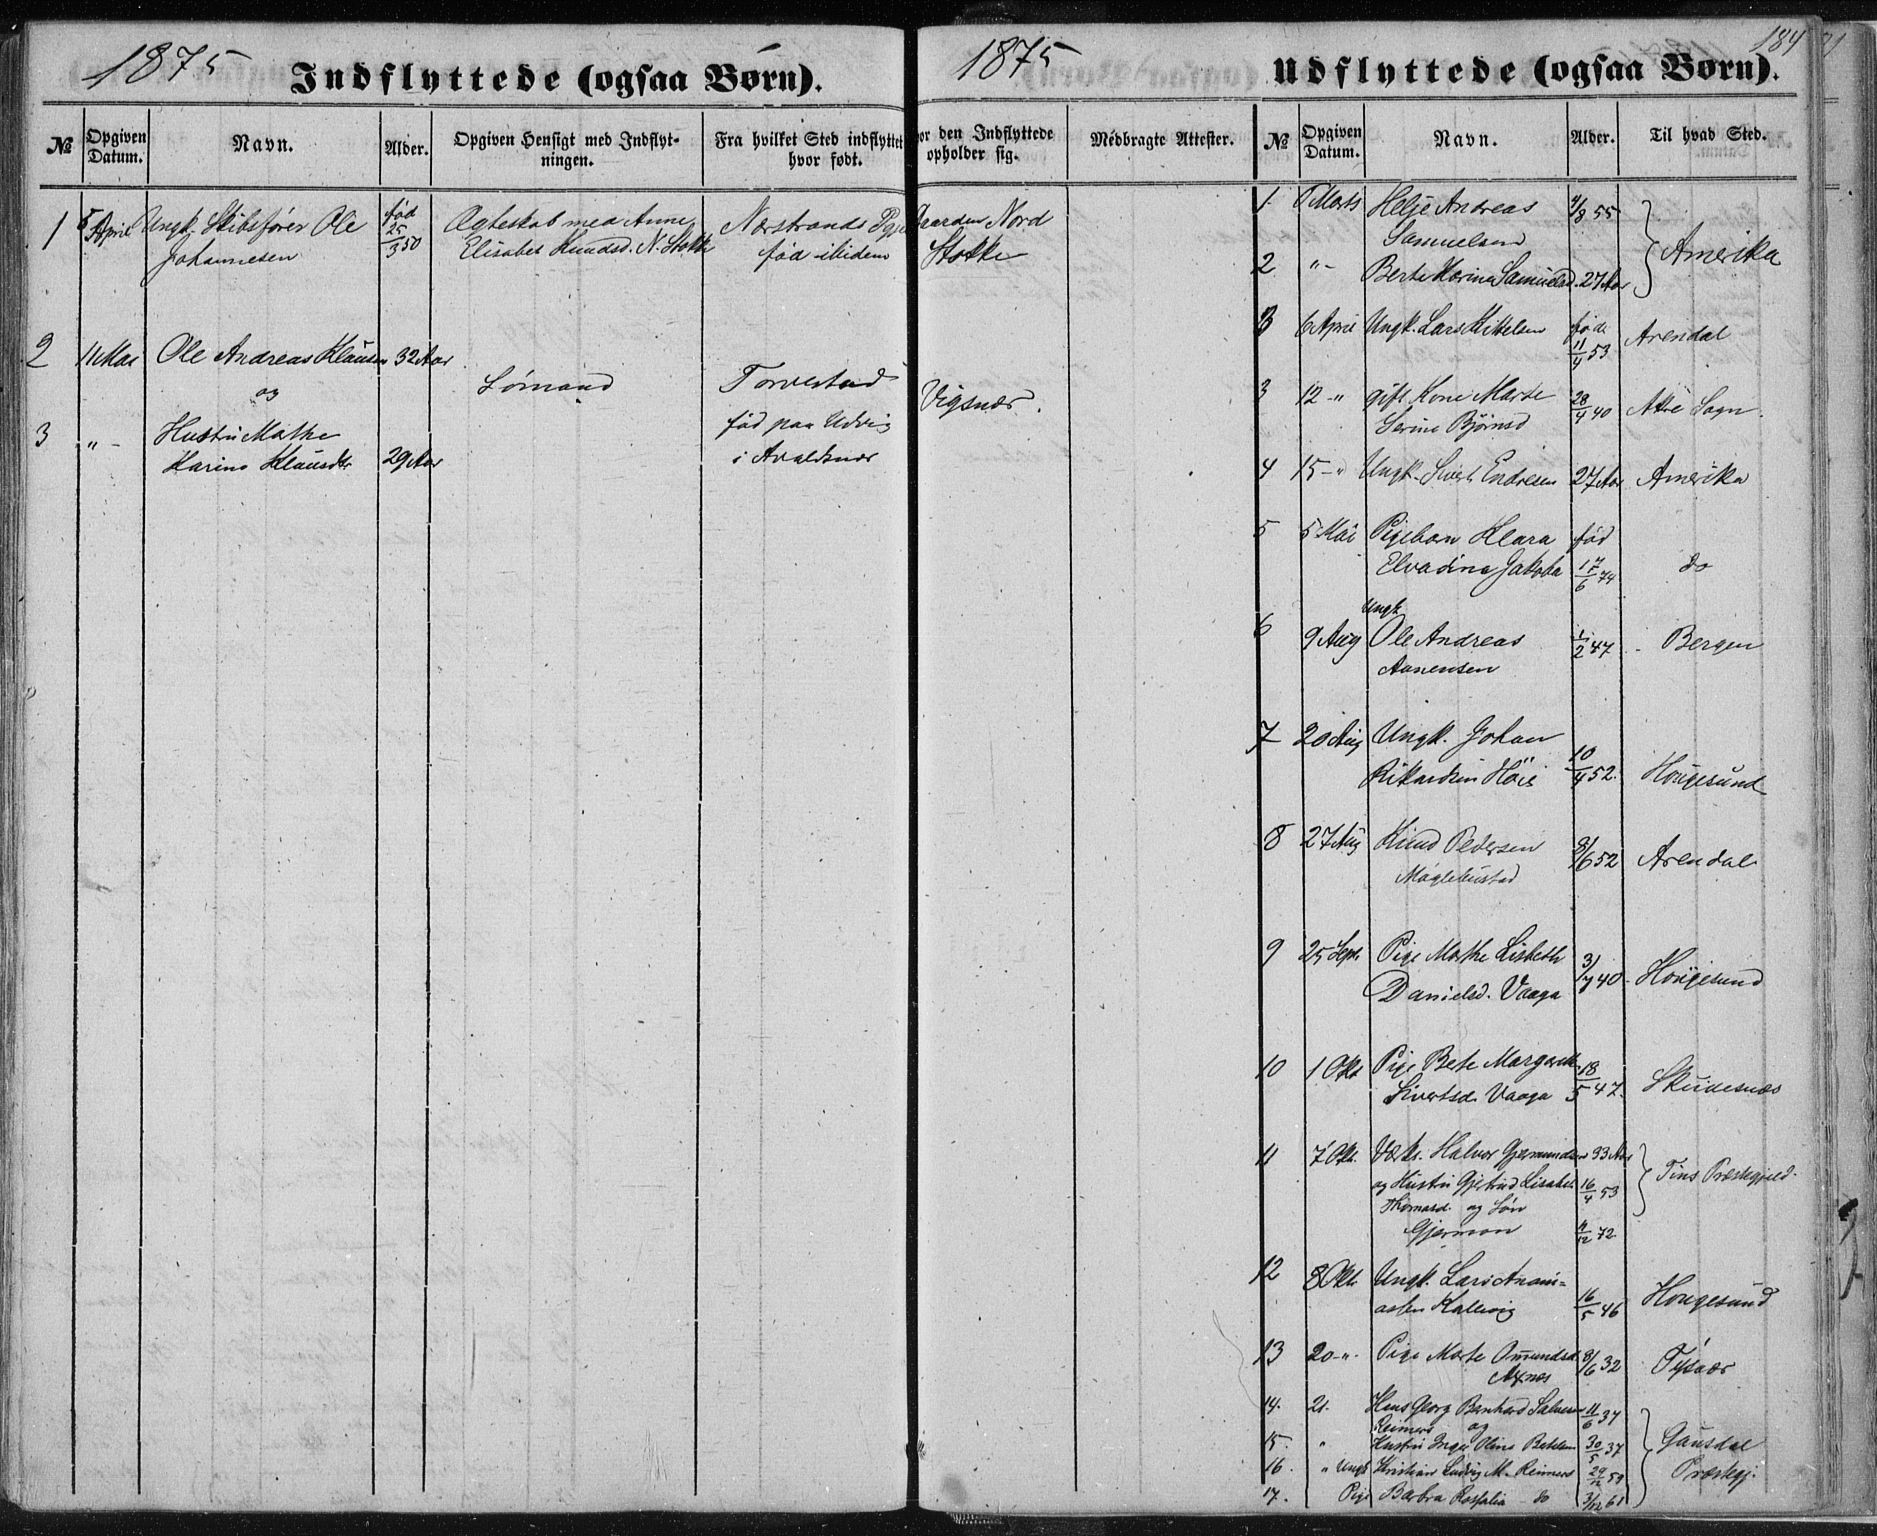 1875
Indflyttede (ogsaa Børn).
№ Opgiven Datum. Navn. Alder. Opgiven Hensigt med Indflytningen. Fra hvilket Sted indflyttet hvor født.
1 5 April Ungk. Skibsfører Ole født 25/3 50 Ægteskab med Anne Nærstrands Pgj
Johannesen Elisabet Knudsd. N. Stokke født ibidem
2 11 Mai Ole Andreas Klausen 32 Aar
og Lømand Torvestad
3 "- Hustru Marthe født paa Udvig
Karine Klausdtr 29 Aar i Avaldsnæs
1875
184
Udflyttede (ogsaa Børn).
or den Indflyttede opholder sig. Medbragte Attester. № Opgiven Datum. Navn. Alder. Til hvad Sted.
Gaarden Nord
Stokke
Vigsnæs.
1 Marts Helje Andreas 4/8 55
Samuelsen Amerika
2 "- Berte Karine Samuelsd. 27 Aar
3 6 April Ungk. Lars Kittelsen fød. 11/4 53 Arendal
3 12 -" gift Kone Marte 28/4 40 Sogn.
Serine Bjørnsd
4 15 -" Ungk. Sivert Endresen 27 Aar Amerika
5 5 Mai Pigebarn Klara fød
Elvadine Jakoba 17/6 74 do
6 9 Aug Ungk
Ole Andreas 1/2 47 - Bergen
Aanensen
7 20 Aug Ungk. Johan
Rikardsen Høie 10/4 52. Hougesund
8 27 Aug Knud Pedersen 8/6 52 Arendal
9 25 Sept. Pige Marthe Lisbeth
Danielsd. Vaaga 3/7 40. Hougesund
10 1 Okt Pige Bete Margarethe 18/5 47. Skudesnæs
Sivertsd. Vaaga
11 7 Okt. Halvor Gjermundsen 33 Aar
og Hustru Gjertrud Lisabet 16/4 53 Tins Præstegjeld.
Thomasd. og Søn
Gjermon 4/12 72
12 8 Okt. Ungk. Lars
Kallevig 16/5 46 Hougesund
13 20 -"- Pige Marte Omundsd. 8/6 32 Tysvær
Axnæs
14. 21. Hans Georg Bernhard Salvesen 11/6 34
Reimers og
15. " Hustru Inger Oline 30/5 37 Gausdal
16. " Ungk Kristian Ludvig M. Reimers 29/12 59 Præstegj.
17. Pige Barbra Rosfalia - do 3/12 61